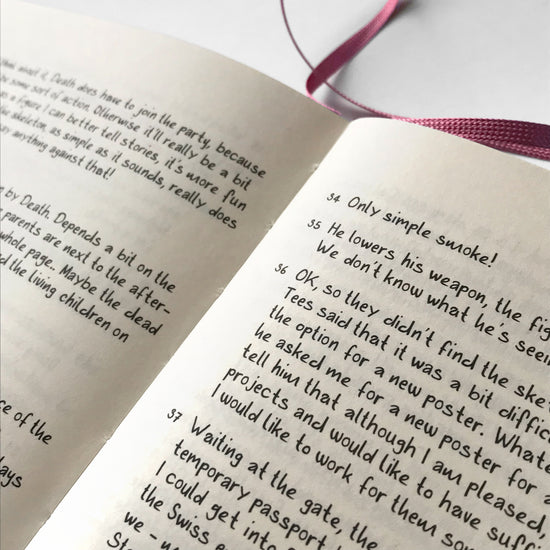 that what it, Death does have to join the party, because
be some sort of action. Otherwise it'll really be a bit
as a figure I can better tell stories, it's more fun
the skeleton, as simple as it sounds, really does
say anything against that!
by Death. Depends a bit on the
parents are next to the after-
whole page.. Maybe the dead
the living children on
of the
34 Only simple smoke!
35 He lowers his weapon, the
We don't know what he's
36 OK, so they didn't find the
Tees said that it was a bit
the option for a new poster.
he asked me for a new poster for
tell him that although I am pleased,
projects and would like to have
I would like to work for them
37 Waiting at the gate, the
temporary passport
I could get into
the Swiss
we -